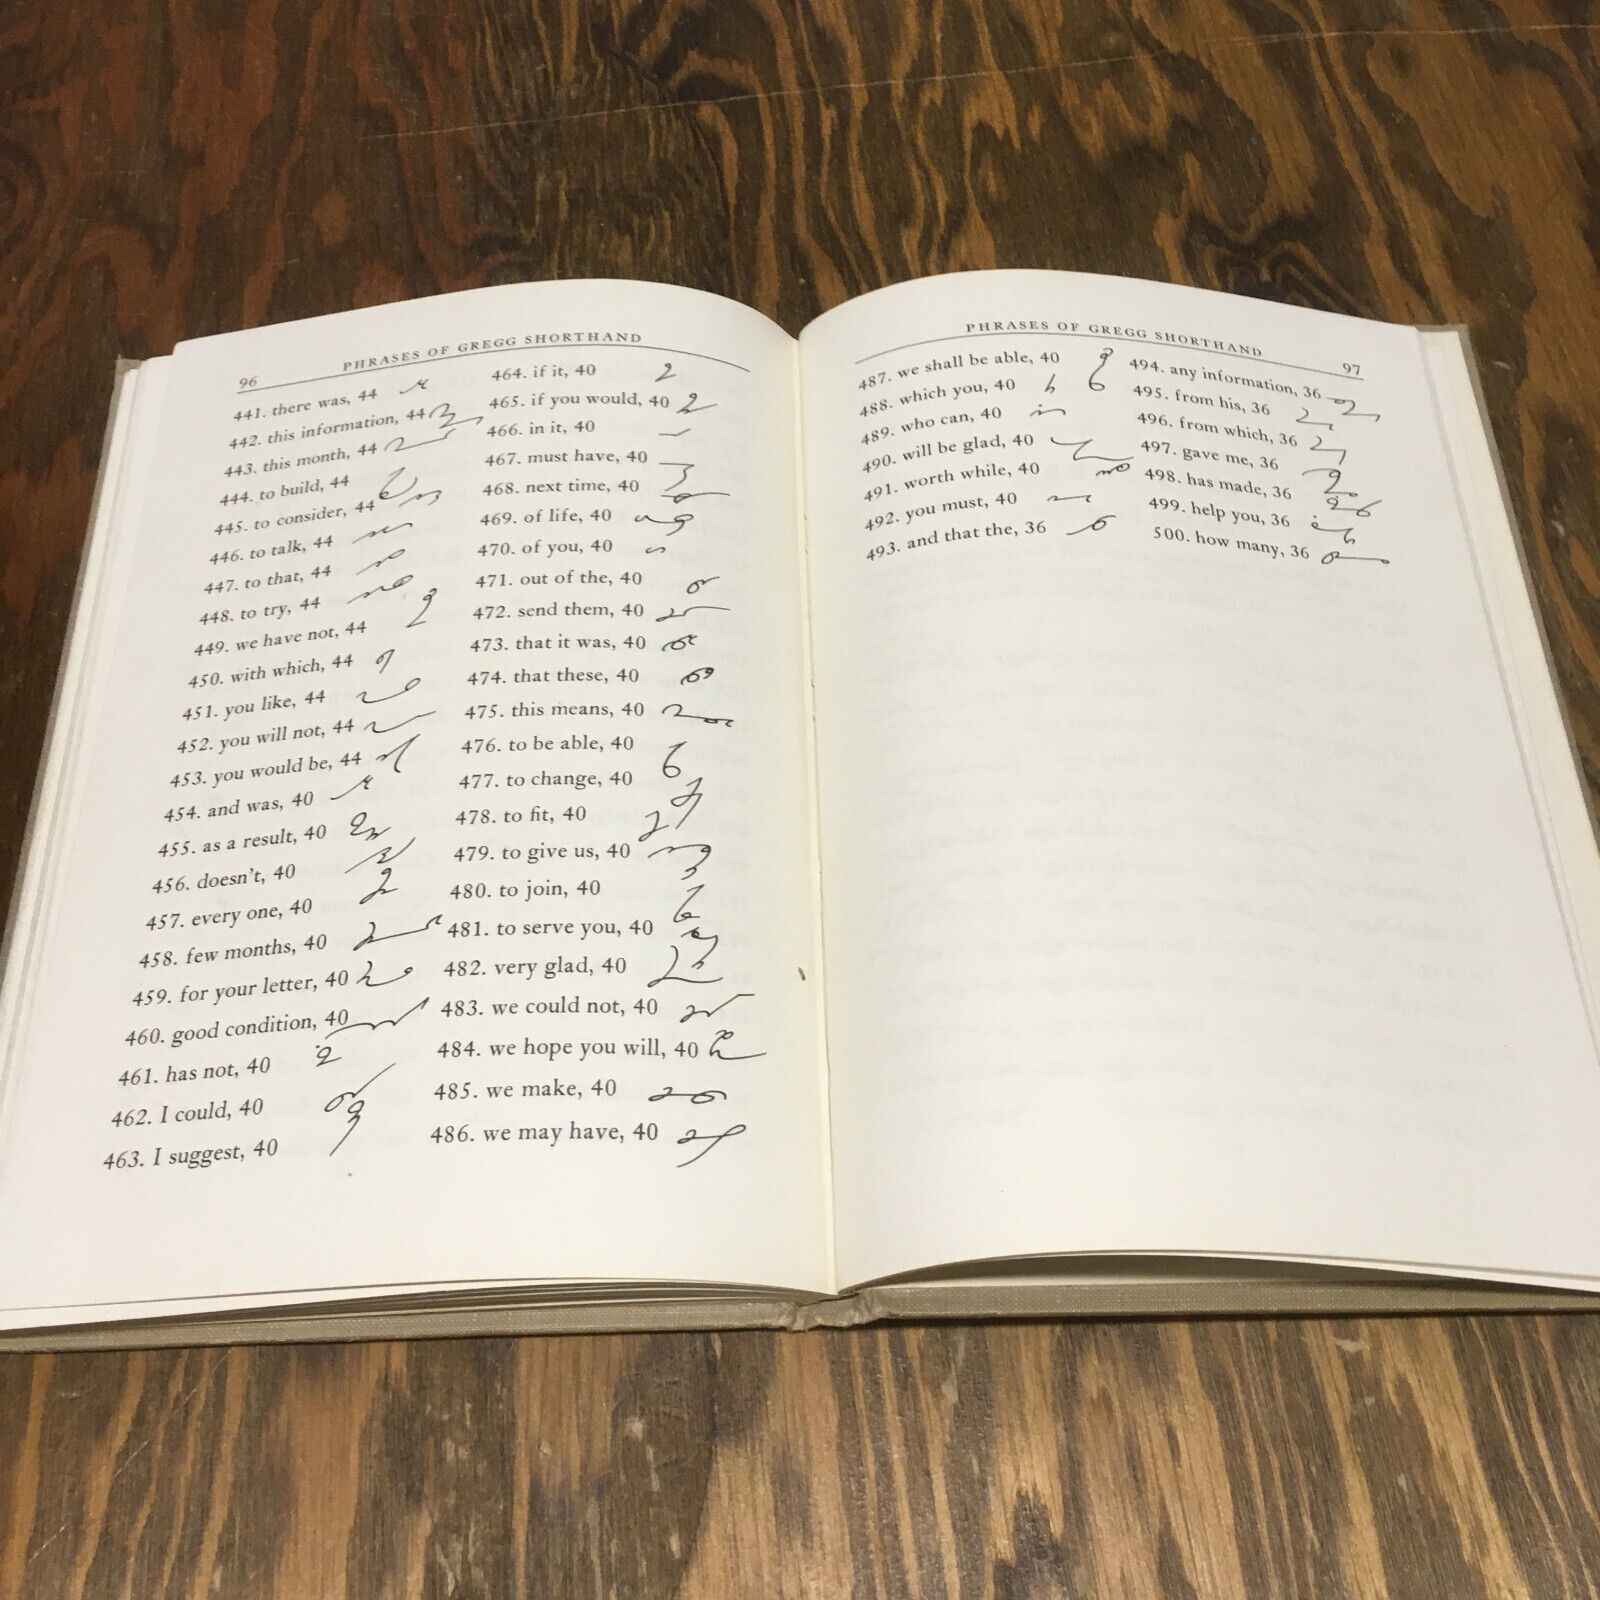 96
PHRASES OF GREGG SHORTHAND
441. there was, 44
442. this information, 44
443. this month, 44
444. to build, 44
445. to consider, 44
446. to talk, 44
447. to that, 44
448. to try, 44
449. we have not, 44
450. with which, 44
451. you like, 44
452. you will not, 44
453. you would be, 44
454. and was, 40
455. as a result, 40
456. doesn't, 40
457. every one, 40
458. few months, 40
459. for your letter, 40
460. good condition, 40
461. has not, 40
462. I could, 40
463. I suggest, 40
464. if it, 40
465. if you would, 40
466. in it, 40
467. must have, 40
468. next time, 40
469. of life, 40
470. of you, 40
471. out of the, 40
472. send them, 40
473. that it was, 40
474. that these, 40
475. this means, 40
476. to be able, 40
477. to change, 40
478. to fit, 40
479. to give us, 40
480. to join, 40
481. to serve you, 40
482. very glad, 40
483. we could not, 40
484. we hope you will, 40
485. we make, 40
486. we may have, 40
PHRASES OF GREGG SHORTHAND
97
487. we shall be able, 40
488. which you, 40
489. who can, 40
490. will be glad, 40
491. worth while, 40
492. you must, 40
493. and that the, 36
494. any information, 36
495. from his, 36
496. from which, 36
497. gave me, 36
498. has made, 36
499. help you, 36
500. how many, 36